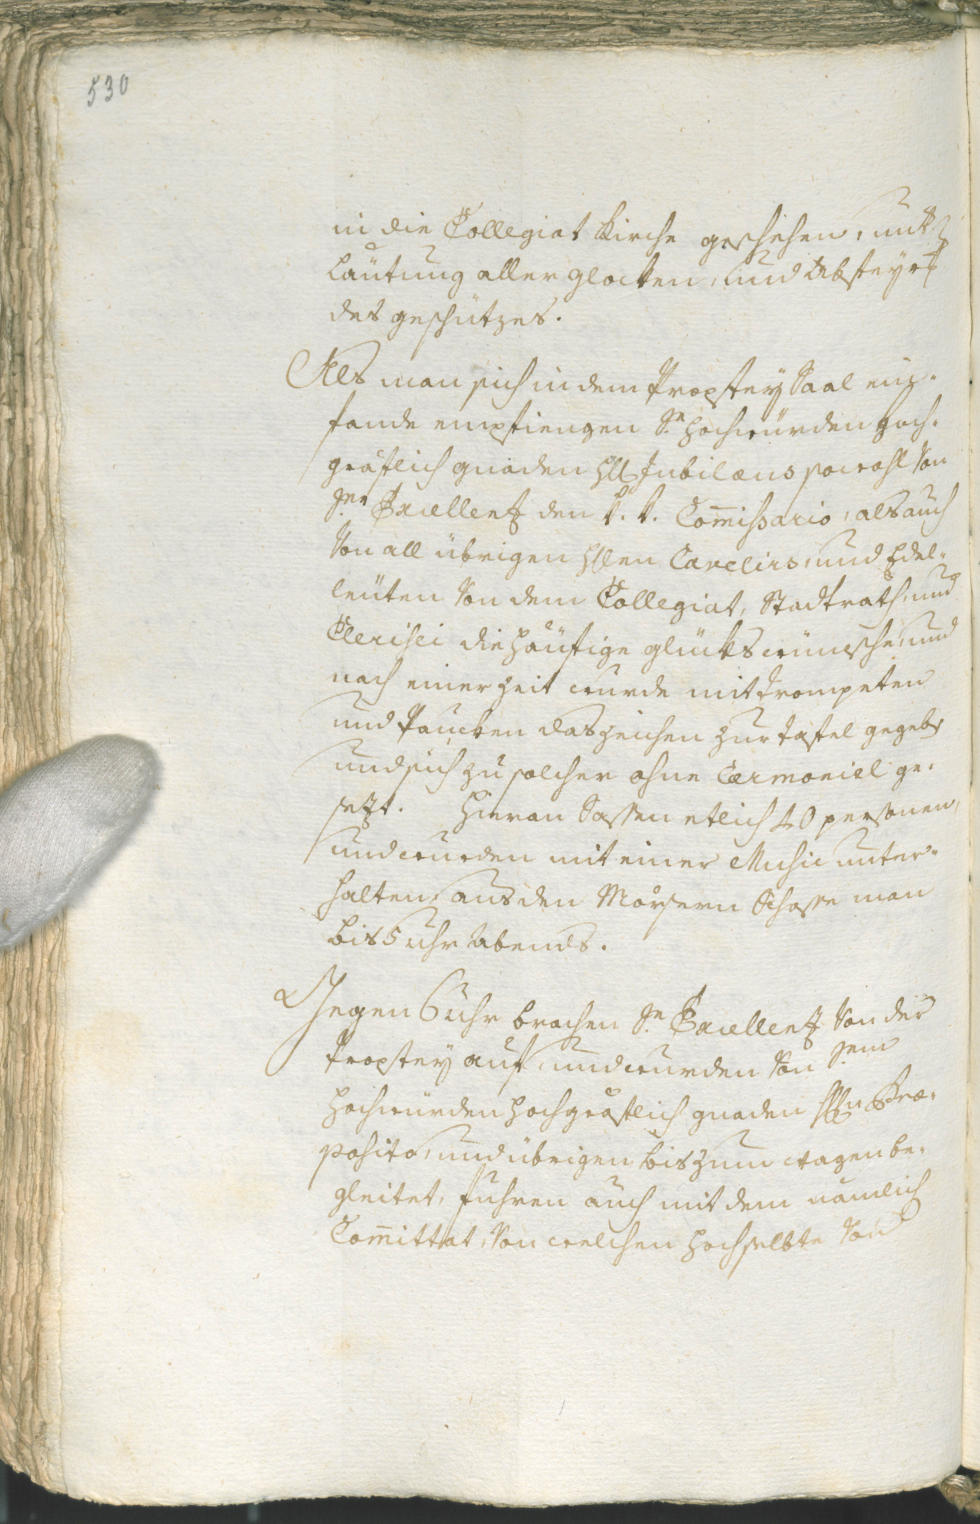 530
in die Collegiat Kirche geschehen, unter
Läutung aller glocken, und Absteyrg
des geschützes.
Als man sich in dem Propstey Saal ein-
fande empfiengen Se. Hochwürden Hoch-
gräflich gnaden HH Jubilæus sowohl Von
Sr. Excellenz den t. t. Com̄issario, als auch
Von all übrigen HHen Cavelirs, und Edel-
leüten Von dem Collegiat, Stadtrath, und
Clerisei die häüfige glückswünsche, und
nach einer zeit wurde mit trompeten
und Paucken das zeichen zur tafel gegebn
und sich zu solcher ohne Cærmoniel ge-
sezt. Hieran Sassen etlich 40 personen,
und wurden mit einer Music unter-
halten, aus den Mörsern Schosse man
bis 5 uhr Abends.
Gegen 6 uhr brachen Se. Excellenz Von der
Propstey auf, und wurden Von Sr.
Hochwürden Hochgräflich gnaden HHn Præ-
posito, und übrigen bis zum wagen be-
gleitet, fuhren auch mit dem nämlich
Com̄ittat, Von welchen Hochselbte Von